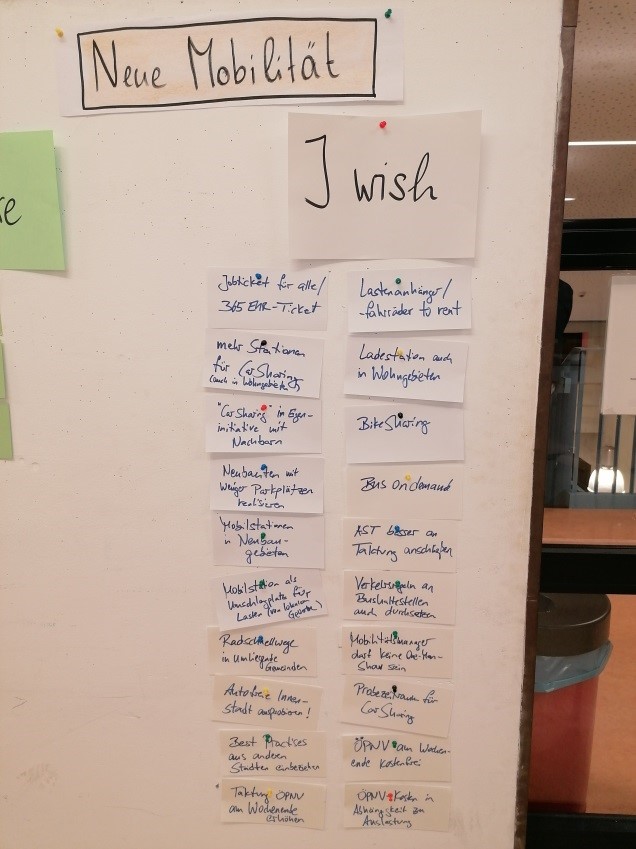 Neue Mobilität
re
I wish
Jobticket für alle/
365 EUR-Ticket
mehr Stationen
für CarSharing
(auch in Wohngebieten)
"CarSharing" in Eigen-
initiative mit
Nachbarn
Neubauten mit
weniger Parkplätzen
realisieren
Mobilstationen
in Neubau-
gebieten
Mobilstation als
Umschlagplatz für
Lasten (von lokalem
Gewerbe)
Radschnellwege
in umliegende
Gemeinden
Autofreie Innen-
stadt ausprobieren!
Best Practises
aus anderen
Städten einbeziehen
Taktung ÖPNV
am Wochenende
erhöhen
Lastenanhänger/
-fahrräder to rent
Ladestation auch
in Wohngebieten
BikeSharing
Bus on demand
AST besser an
Taktung anschließen
Verkehrsregeln an
Bushaltestellen
auch durchsetzen
Mobilitätsmanager
darf keine One-Man-
Show sein
Probezeitraum für
CarSharing
ÖPNV am Wochen-
ende kostenfrei
ÖPNV-Kosten in
Abhängigkeit zu
Auslastung